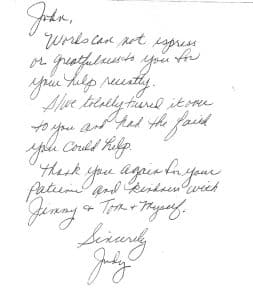 John,
Words can not express
or greatfulness to you for
your help recently.
We totally turned it over
to you and had the faith
you could help.
Thank you again for your
Patience and kindness with
Jimmy & Tom & Myself.
Sincerely
Judy